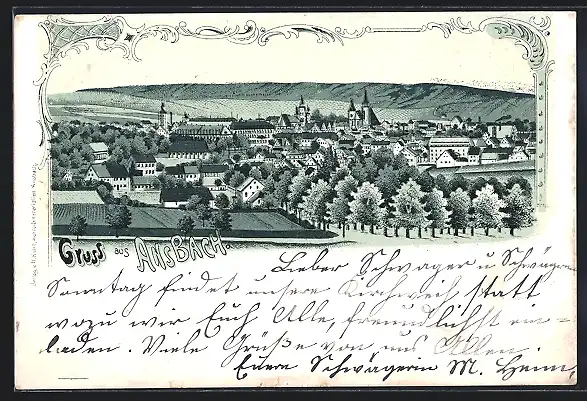 Gruss aus Ansbach.
Lieber Schwager u Schwägerin
Sonntag findet unsere Kirchweih statt
wozu wir Euch Alle, freundlichst ein=
laden. Viele Grüße von uns Allen.
Euere Schwägerin M. Heim,